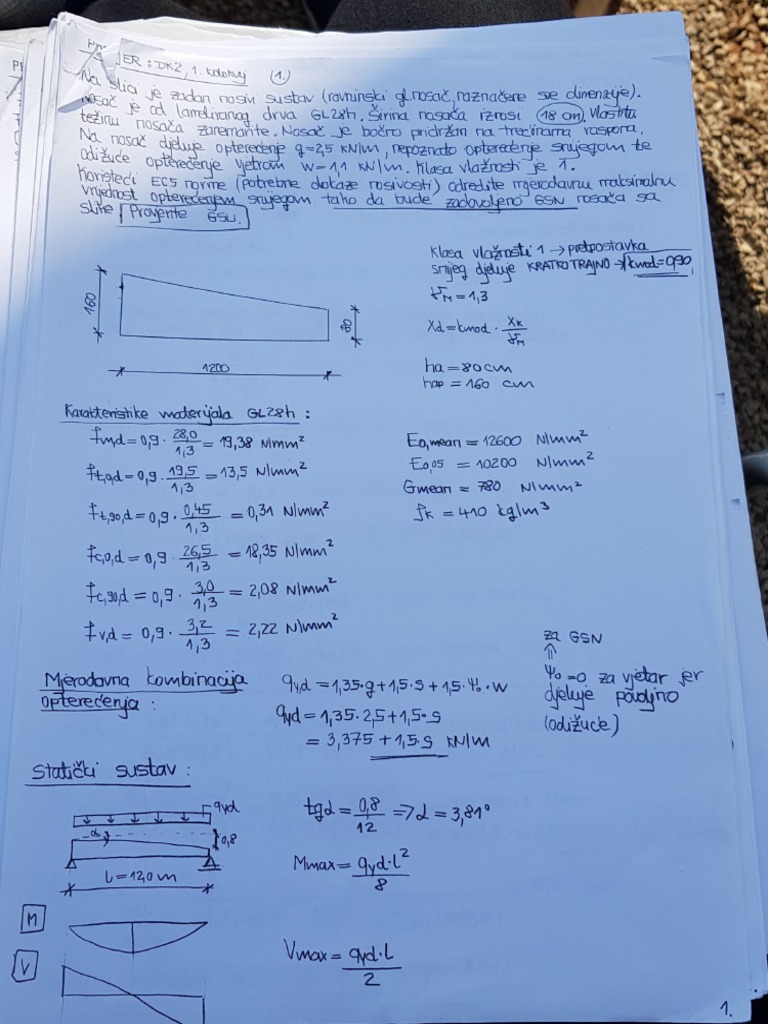 ER: DK2, 1. kolokvij (1.)
Na slici je zadan nosivi sustav (ravninski gl. nosač, naznačene sve dimenzije).
Nosač je od lameliranog drva GL28h. Širina nosača iznosi 18 cm. Vlastitu
težinu nosača zanemarite. Nosač je bočno pridržan na trećinama raspona.
Na nosač djeluje opterećenje g=2,5 kN/m, nepoznato opterećenje snijegom te
odižuće opterećenje vjetrom w=1,1 kN/m. Klasa vlažnosti je 1.
Koristeći EC5 norme (potrebne dokaze nosivosti) odredite mjerodavnu maksimalnu
vrijednost opterećenjem snijegom tako da bude zadovoljeno GSN nosača sa
slike Provjerite GSU.
Klasa vlažnosti 1 → pretpostavka
snijeg djeluje KRATKOTRAJNO → kmod=0,90
γM = 1,3
Xd = kmod · Xk/γM
ha = 80 cm
hap = 160 cm
160
80
1200
Karakteristike materijala GL28h :
fm,d = 0,9 · 28,0/1,3 = 19,38 N/mm²
ft,0,d = 0,9 · 19,5/1,3 = 13,5 N/mm²
ft,90,d = 0,9 · 0,45/1,3 = 0,31 N/mm²
fc,0,d = 0,9 · 26,5/1,3 = 18,35 N/mm²
fc,90,d = 0,9 · 3,0/1,3 = 2,08 N/mm²
fv,d = 0,9 · 3,2/1,3 = 2,22 N/mm²
E0,mean = 12600 N/mm²
E0,05 = 10200 N/mm²
Gmean = 780 N/mm²
ρk = 410 kg/m³
Mjerodavna kombinacija
opterećenja :
qyd = 1,35·g + 1,5·s + 1,5·ψ0·w
qyd = 1,35·2,5 + 1,5·s
= 3,375 + 1,5·s kN/m
za GSN
⇑
ψ0 = 0 za vjetar jer
djeluje povoljno
(odižuće)
Statički sustav :
qyd
α
0,8
l = 12,0 m
tgα = 0,8/12 => α = 3,81°
Mmax = qyd·l²/8
M
V
Vmax = qyd·l/2
1.